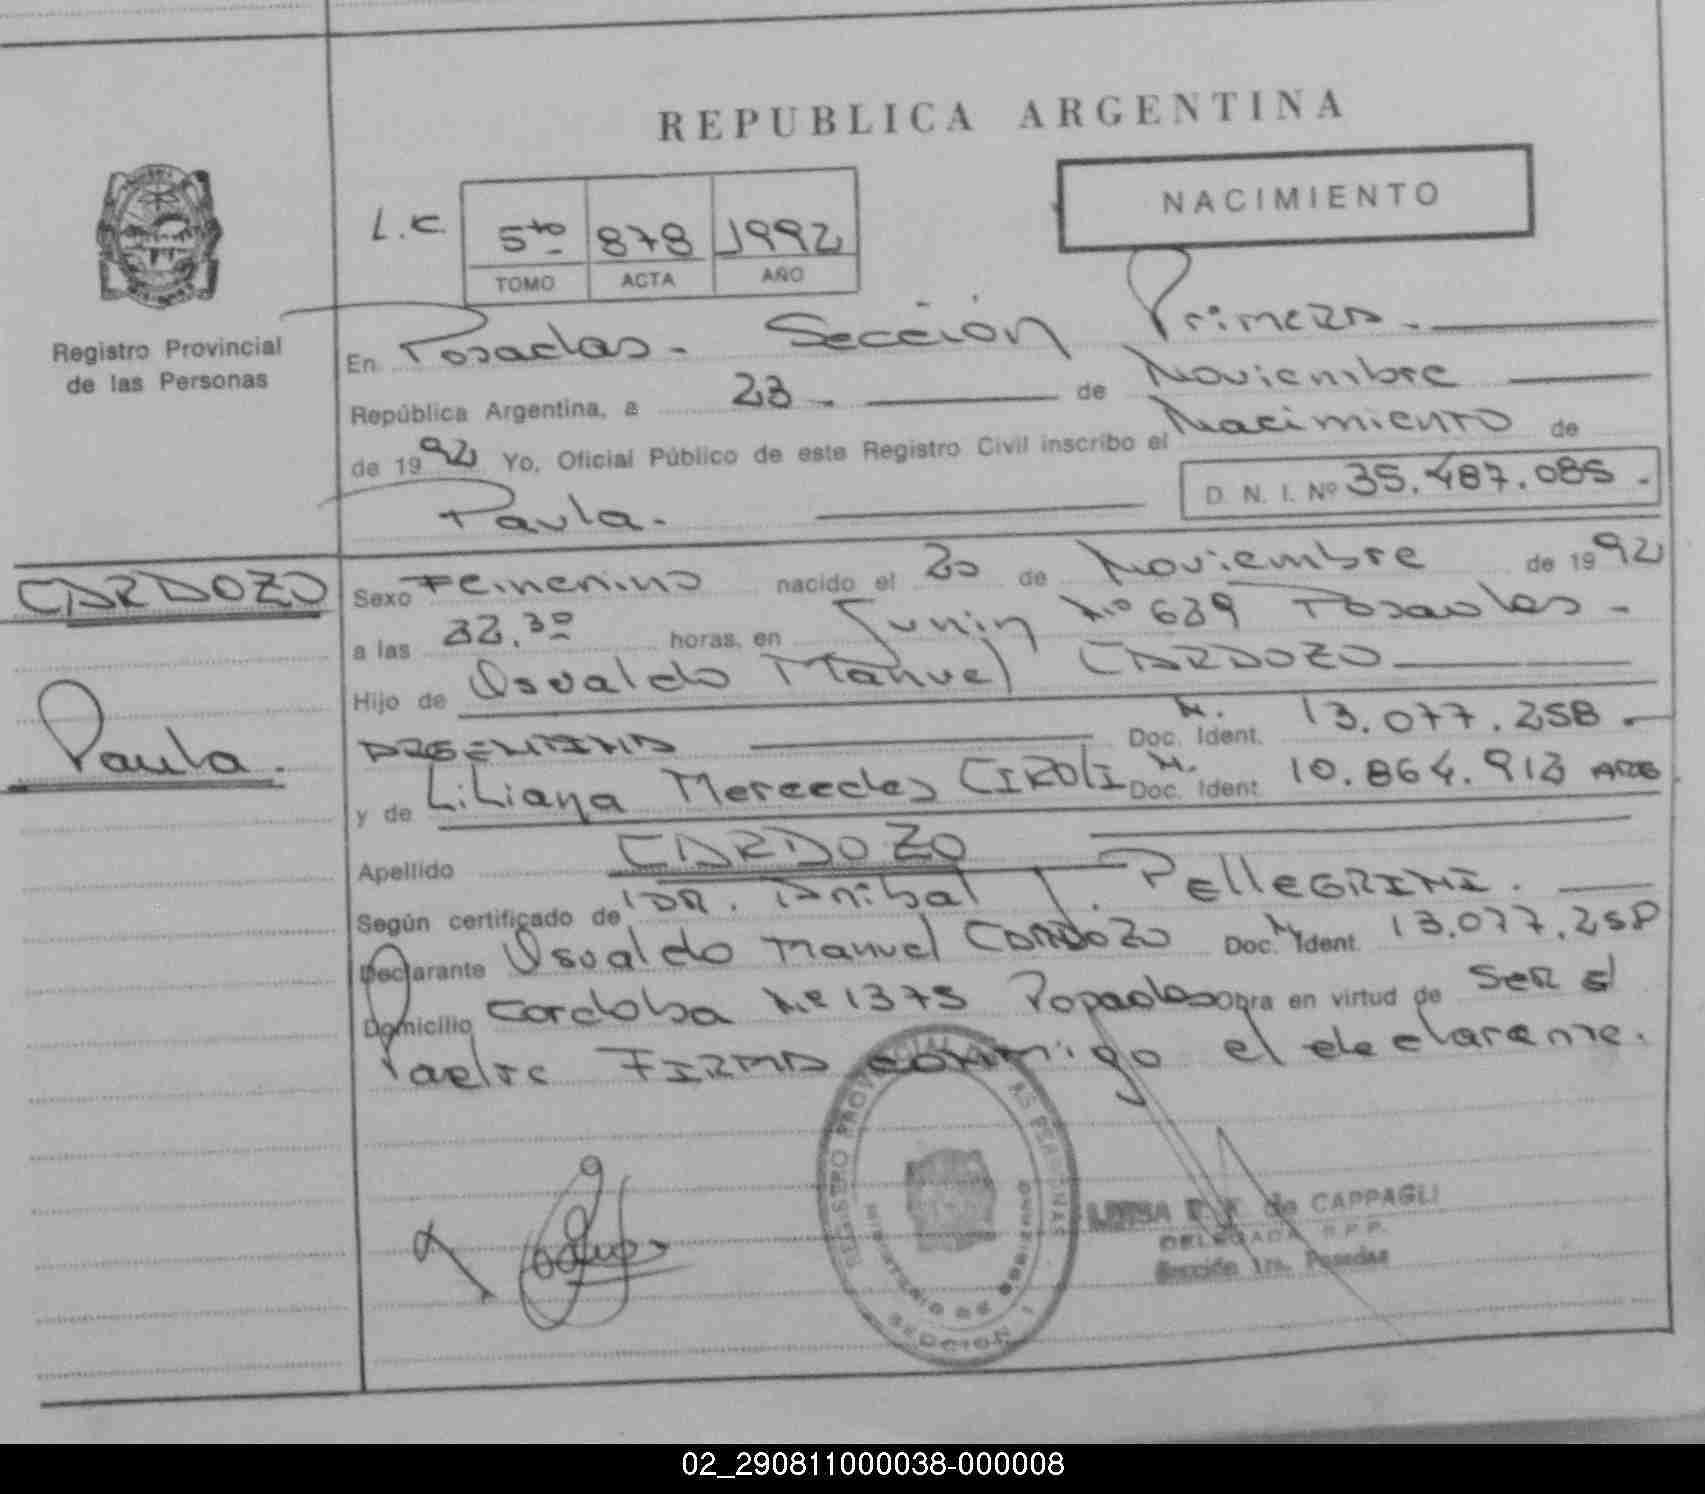 REPUBLICA ARGENTINA
NACIMIENTO
L.C. 5to 878 1992
TOMO ACTA AÑO
Registro Provincial
de las Personas
En Posadas - Sección Primera.
República Argentina, a 23 - de Noviembre
de 1992 Yo, Oficial Público de este Registro Civil inscribo el Nacimiento de
Paula.
D. N. I. Nº 35.487.085.
CARDOZO
Paula.
Sexo Femenino nacido el 20 de Noviembre de 1992
a las horas, en Junin Nº 639 Posadas -
Hijo de Osvaldo Manuel CARDOZO
ARGENTINA M. Doc. Ident. 13.077.258
y de Liliana Mercedes CIROLI M. Doc. Ident. 10.864.913 ARG.
Apellido CARDOZO
Según certificado de DR. Anibal J. PELLEGRINI.
Declarante Osvaldo Manuel CARDOZO Doc. M. Ident. 13.077.258
Domicilio Cordoba Nº 1375 Posadas Obra en virtud de SER el
Padre FIRMA conmigo el declarante.
REGISTRO PROVINCIAL DE LAS PERSONAS
MINISTERIO DE GOBIERNO
SECCION 1
de CAPPAGLI
DELEGADA R.P.P.
Sección 1ra. Posadas
02_290811000038-000008